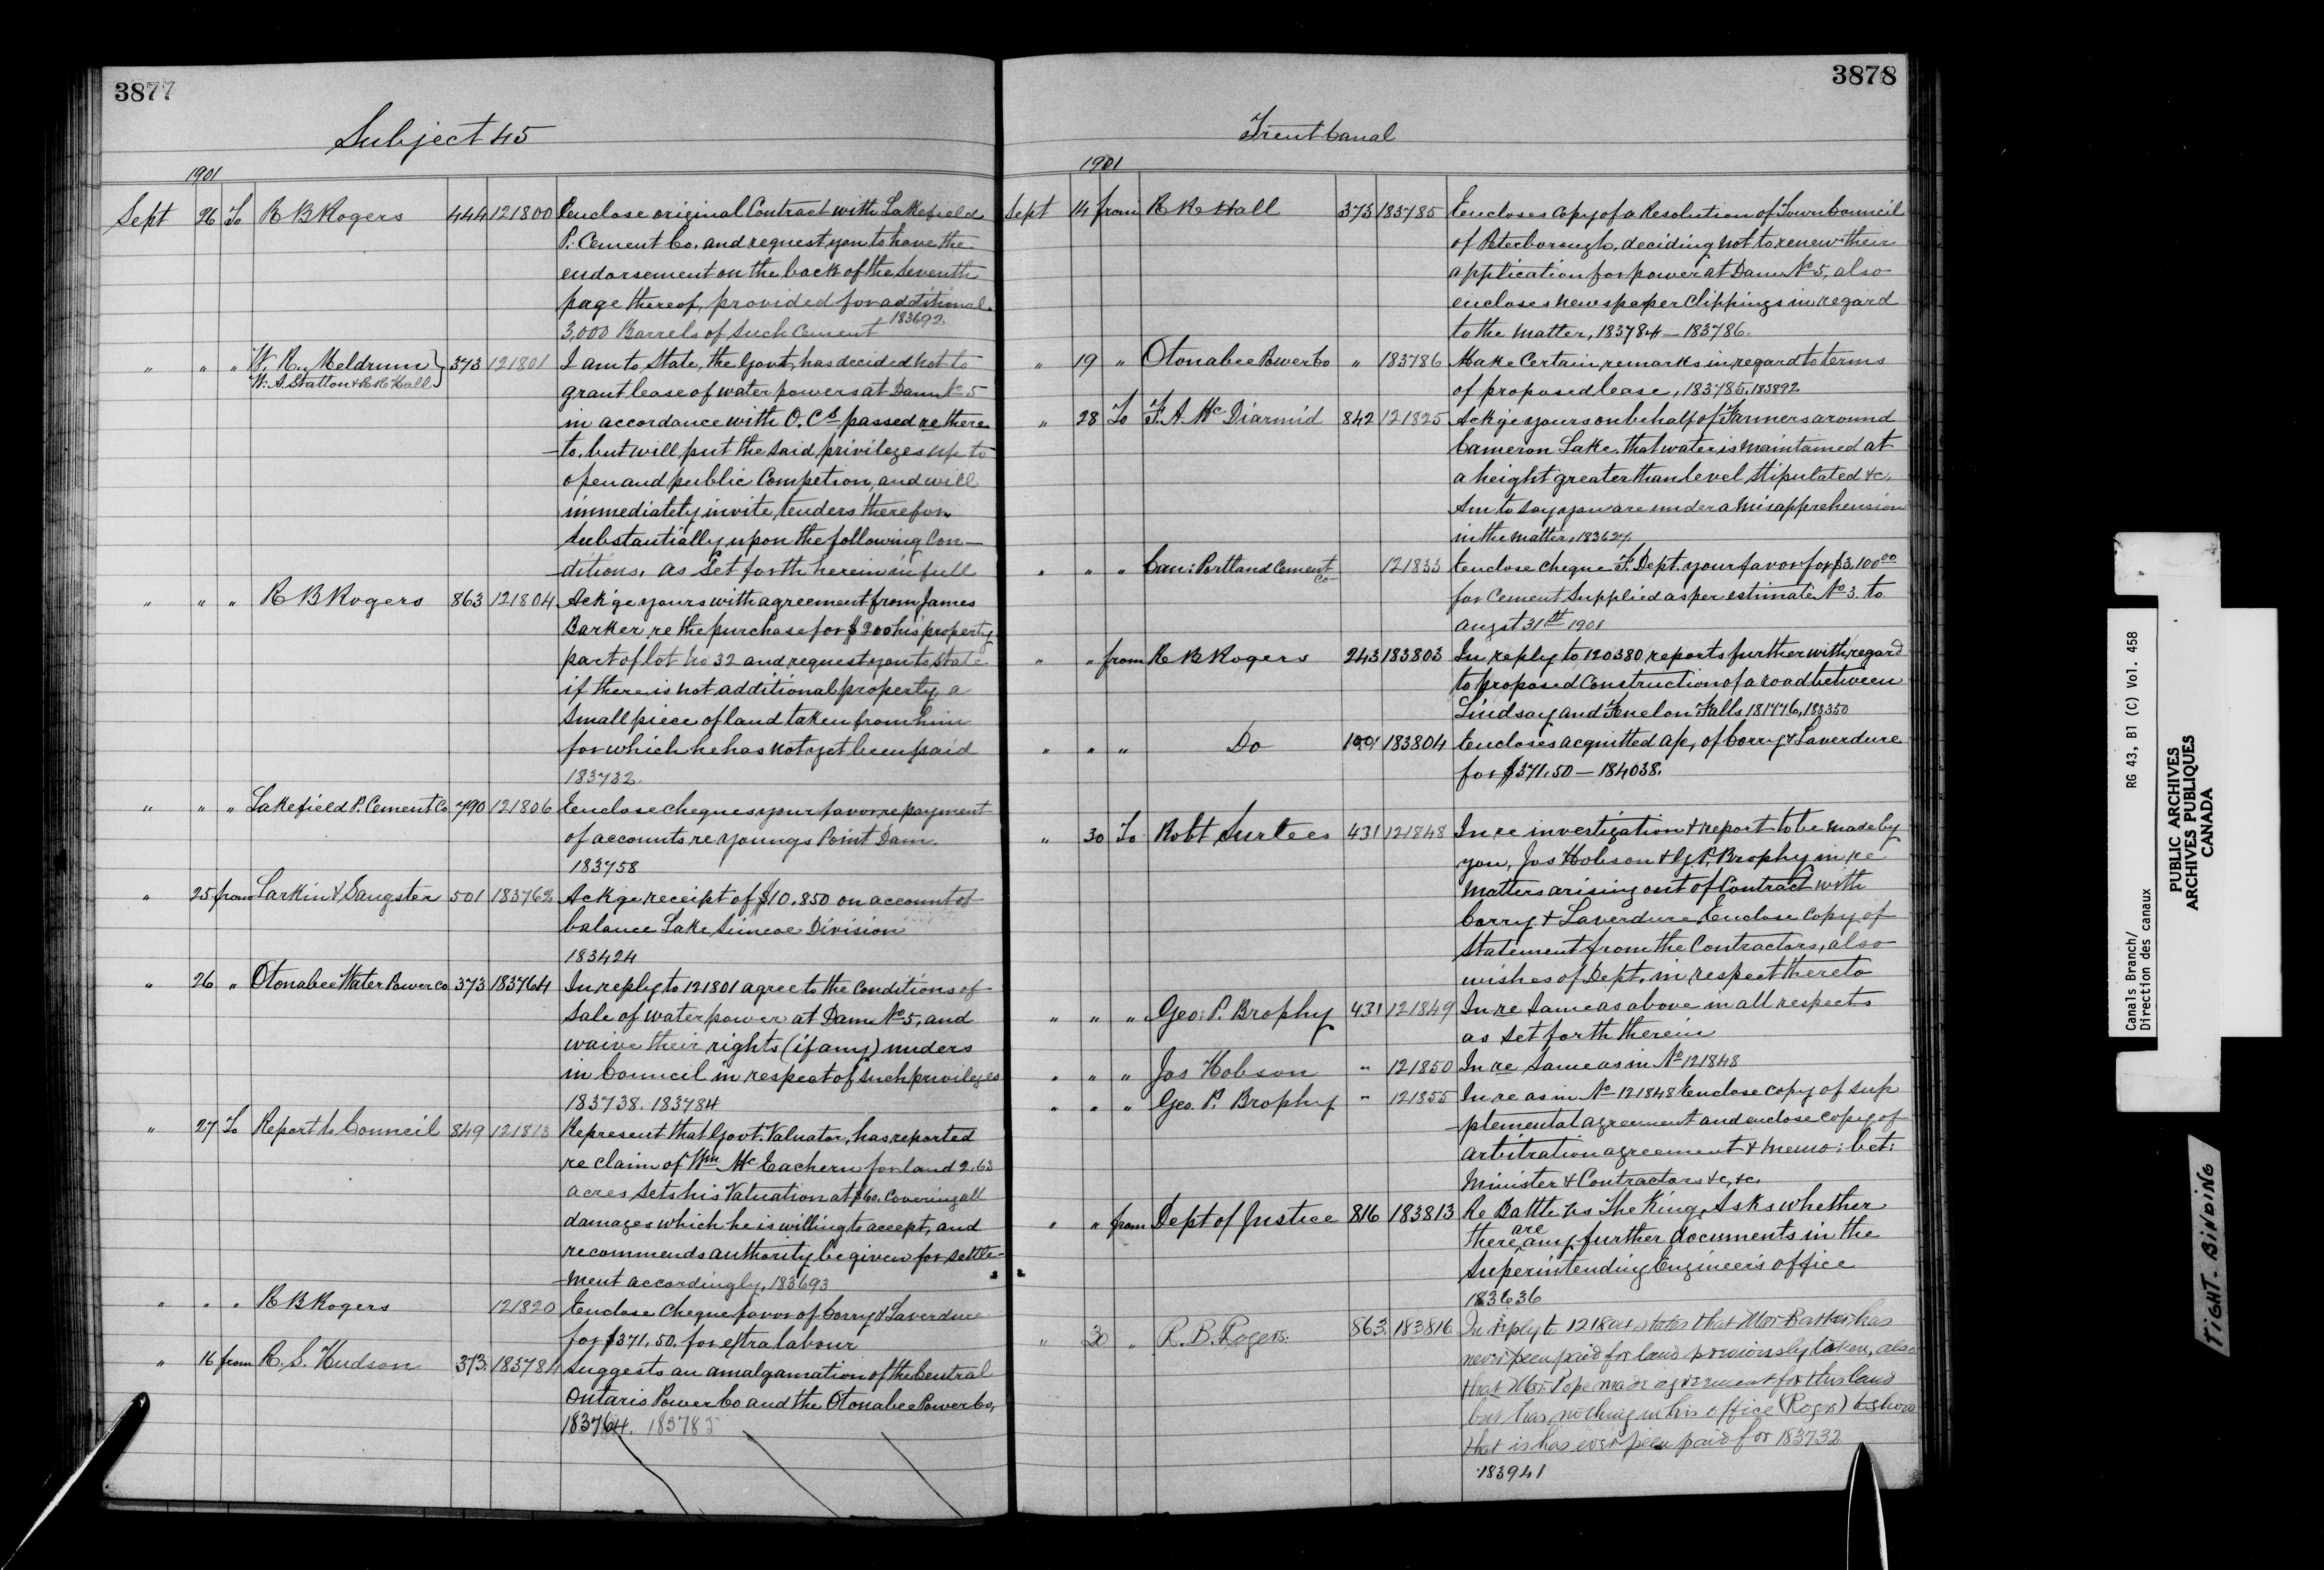 3877
Subject 45
1901
Sept 26 To R B Rogers 444 121800 Enclose original Contract with Lakefield
P. Cement Co. and request you to have the
endorsement on the back of the seventh
page thereof, provided for additional
3,000 Barrels of such Cement 183692
" " " W. R. Meldrum 373 121801 I am to state, the Govt, has decided not to
W. A. Stratton & R R Hall
grant lease of water powers at Dam No 5
in accordance with O. Cs passed re there
-to, but will put the said privileges up to
open and public Competion, and will
immediately invite tenders therefor,
substantially upon the following Con-
-ditions, as set forth herein in full
" " " R B Rogers 863 121804 Ack'ge yours with agreement from James
Barker, re the purchase for $200 his property
part of lot No 32 and request you to state
if there is not additional property, a
small piece of land taken from him
for which he has not yet been paid
183732.
" " " Lakefield P. Cement Co 790 121806 Enclose cheques your favor, re payment
of accounts re Youngs Point Dam.
183758
" 25 from Larkin & Sangster 501 183762 Ack'ge receipt of $10.850 on account of
balance Lake Simcoe Division
183424
" 26 " Otonabee Water Power Co 373 183764 In reply to 121801 agree to the conditions of
sale of water power at Dam No 5, and
waive their rights (if any) unders
in Council in respect of such privileges
183738. 183784
" 27 To Report to Council 849 121813 Represent that Govt. Valuator, has reported
re claim of Wm McEachern for land 2.63
acres sets his Valuation at $60. Covering all
damages which he is willing to accept, and
recommends authority be given for settle-
-ment accordingly. 183693
" " " R B Rogers 121820 Enclose cheque favor of Corry & Laverdure
for $371.50. for extra labour
" 16 from R. S. Hudson 373. 183784 Suggests an amalgamation of the Central
Ontario Power Co and the Otonabee Power Co,
183764. 183785
3878
Trent Canal
1901
Sept 14 from R R Hall 373 183785 Encloses copy of a Resolution of Town Council
of Peterborough, deciding not to renew their
application for power at Dam No 5, also
encloses newspaper clippings in regard
to the matter, 183784 - 183786.
" 19 " Otonabee Power Co " 183786 Make Certain remarks in regard to terms
of proposed lease, 183785. 183892
" 28 To F. A. McDiarmid 842 121825 Ack'ge yours on behalf of Farmers around
Cameron Lake, that water is maintained at
a height greater than level stipulated &c.
Am to say you are under a misapprehension
in the matter. 183624
" " " Can: Portland Cement Co 121833 Enclose cheque F. Dept. your favor for $3,100.00
for Cement Supplied as per estimate No 3. to
augst 31st 1901
" " from R B Rogers 243 183803 In reply to 120380 reports further with regard
to proposed Construction of a road between
Lindsay and Fenelon Falls 181776, 183350
" " " Do 190 183804 Encloses acquitted a/c, of Corry & Laverdure
for $371.50 - 184038.
" 30 To Robt Surtees 431 121848 In re investigation & report to be made by
you, Jas Hobson & G. P. Brophy in re
matters arising out of Contract with
Corry & Laverdure, Enclose copy of
statement from the Contractors, also
wishes of Dept. in respect thereto
" " " Geo: P. Brophy 431 121849 In re same as above in all respects
as set forth therein
" " " Jas Hobson " 121850 In re, same as in No 121848
" " " Geo. P. Brophy " 121855 In re as in No 121848 Enclose copy of sup
-plemental agreement and enclose copy of
arbitration agreement & memo: bet:
Minister & Contractors &c, &c.
" " from Dept of Justice 816 183813 Re Battle vs The King, Asks whether
there are any further documents in the
Superintending Engineers office
183636
" 30 " R. B. Rogers. 863. 183816 In reply to 121804 states that Mr Barker has
never been paid for land previously taken, also
that Mr. Pope made agreement for this land
but has nothing in his office (Rogers) to show
that is has ever been paid for 183732
183941
Canals Branch/ RG 43, B1 (C) Vol. 458
Direction des canaux
PUBLIC ARCHIVES
ARCHIVES PUBLIQUES
CANADA
TIGHT BINDING